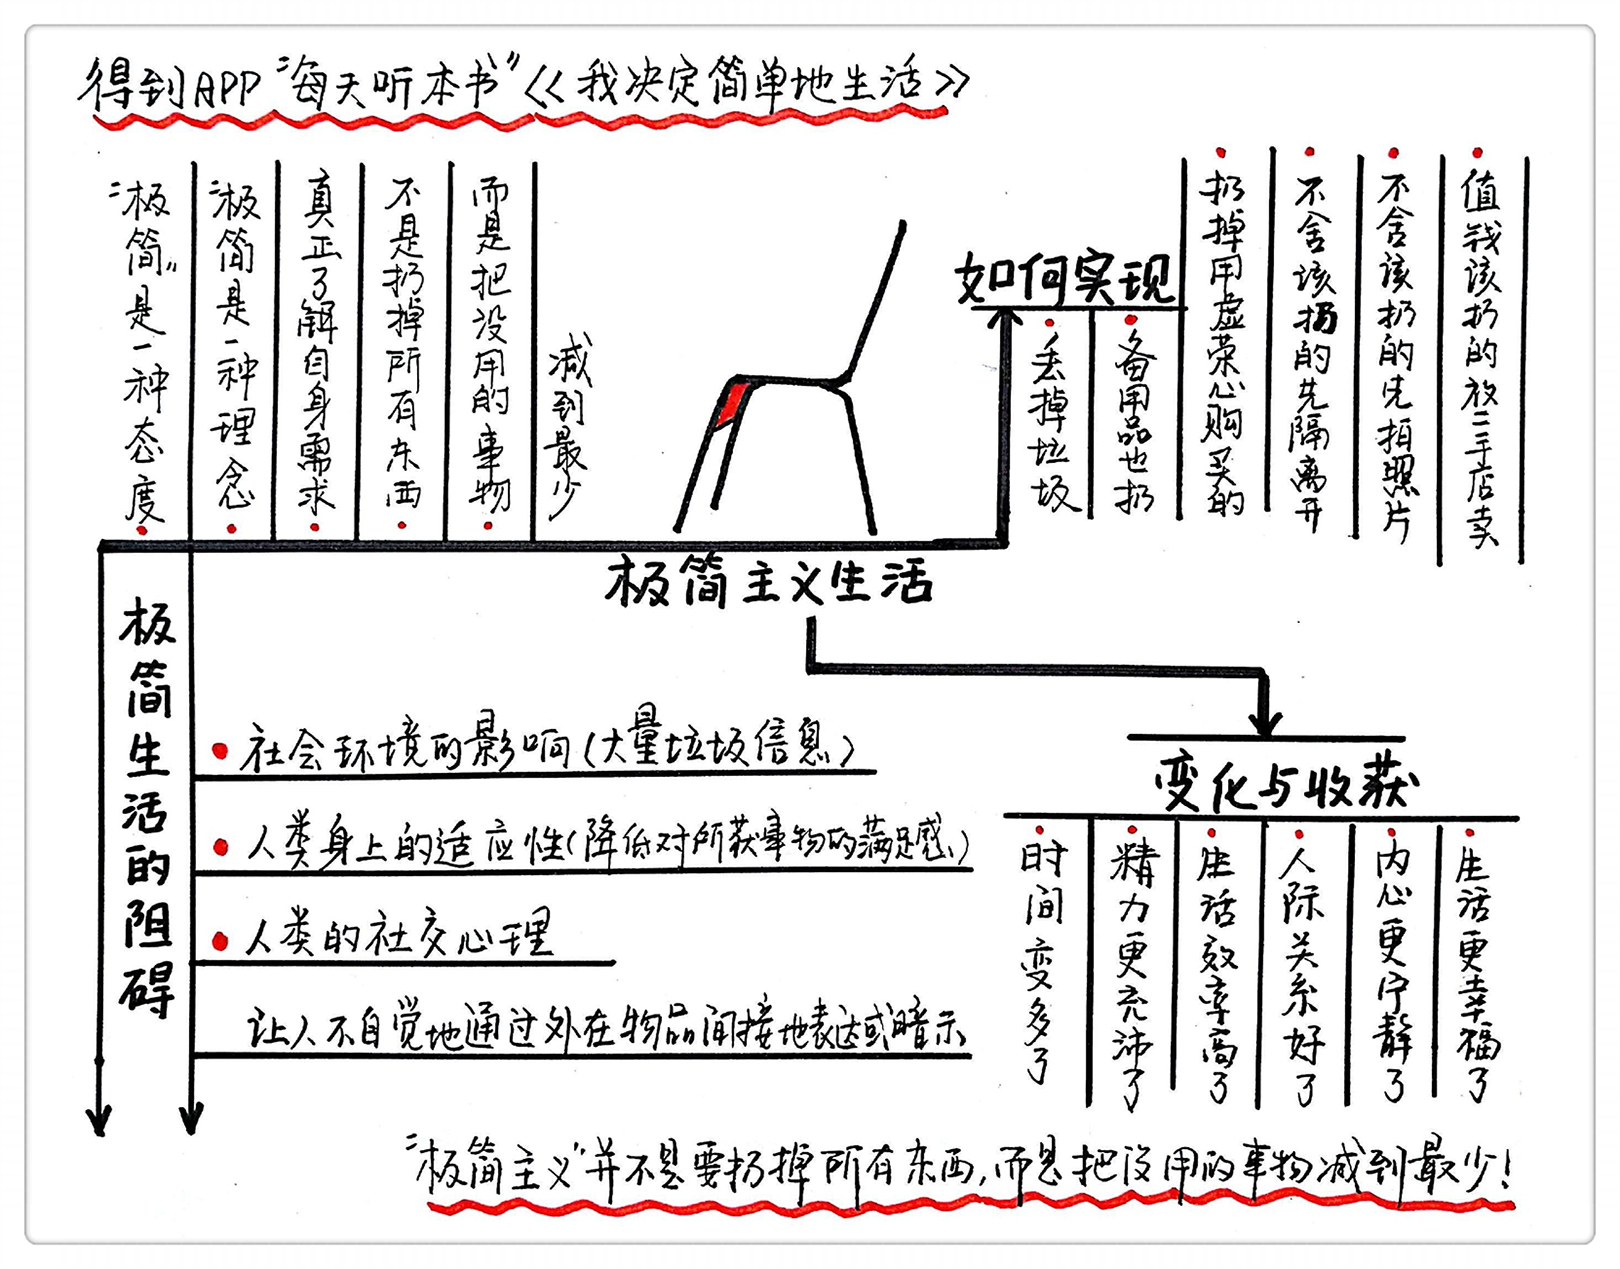 得到APP“每天听本书”《我决定简单地生活》
“极简”是一种态度
“极简是一种理念
真正了解自身需求
不是扔掉所有东西
而是把没用的事物
减到最少
如何实现
丢掉垃圾
备用品也扔
扔掉用虚荣心购买的
不舍该扔的先隔离开
不舍该扔的先拍照片
值钱该扔的放二手店卖
极简主义生活
极简生活的阻碍
社会环境的影响(大量垃圾信息)
人类身上的适应性(降低对所获事物的满足感)
人类的社交心理
让人不自觉地通过外在物品间接地表达或暗示
变化与收获
时间变多了
精力更充沛了
生活效率高了
人际关系好了
内心更宁静了
生活更幸福了
“极简主义”并不是要扔掉所有东西,而是把没用的事物减到最少!